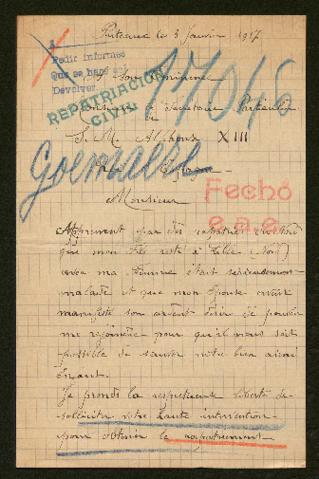 Puteaux le 3 Janvier 1917
Pedir informes
Que se hace
Devolver
A Son Eminence
17046
REPATRIACION
CIVIL
Secrétaire Particulier
de
S. M. Alphonse XIII
Goemaere
Monsieur
Fecho
Apprenant par des rapatriés
que mon fils resté à Lille (Nord)
avec ma femme était sérieusement
malade et que mon épouse avait
manifesté son ardent désir de pouvoir
me rejoindre pour qu'il nous soit
possible de sauver notre bien aimé
Enfant.
Je prends la respectueuse liberté de
solliciter votre haute intervention
pour obtenir le rapatriement